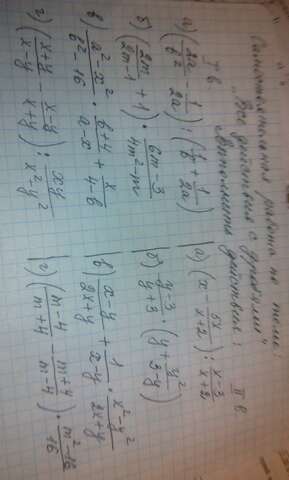 Самостоятельная работа по теме:
"Все действия с дробями"
I в. Выполните действие: II в
а) (2a/b² - 1/2a) : (1/b + 1/2a)
б) (2m/2m-1 + 1) · 6m-3/4m²-m
в) a²-x²/b²-16 · b+4/a-x + x/4-b
г) (x+y/x-y - x-y/x+y) : xy/x²-y²
а) (x - 5x/x+2) : x-3/x+2
б) y-3/y+3 · (y + y²/3-y)
в) x-y/2x+y + 1/x-y · x²-y²/2x+y
г) (m-4/m+4 - m+4/m-4) · m²-16/16